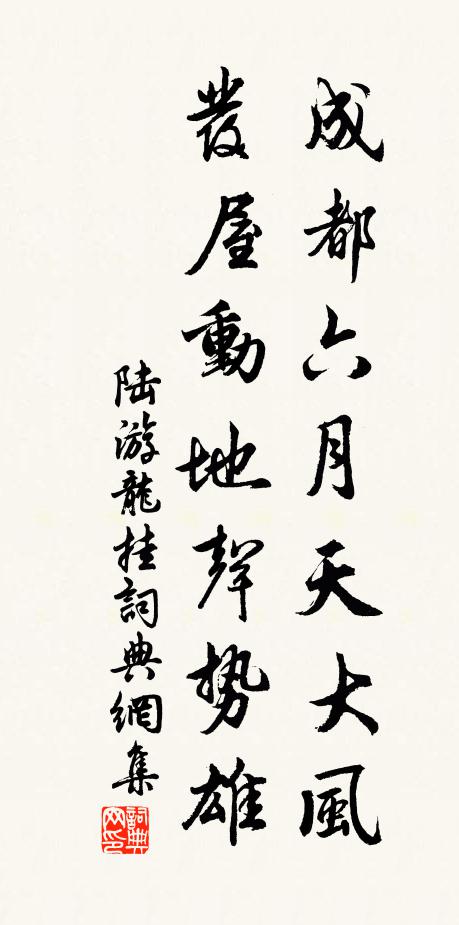 成都六月天大風
發屋動地聲勢雄
陆游龍挂詞典網集
詞典网印